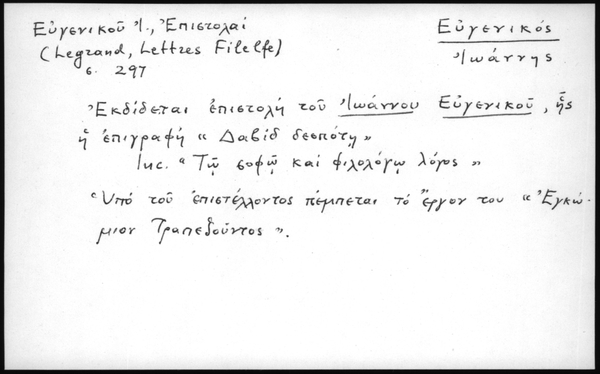 Εὐγενικοῦ Ἰ., Ἐπιστολαί
(Legrand, Lettres Filelfe)
σ. 297
Εὐγενικός
Ἰωάννης
Ἐκδίδεται ἐπιστολή τοῦ Ἰωάννου Εὐγενικοῦ, ἧς
ἡ ἐπιγραφή « Δαβίδ δεσπότῃ »
Inc. " Τῷ σοφῷ καί φιλολόγῳ λόγος »
Ὑπό τοῦ ἐπιστέλλοντος πέμπεται τό ἔργον του « Ἐγκώ-
μιον Τραπεζοῦντος ».